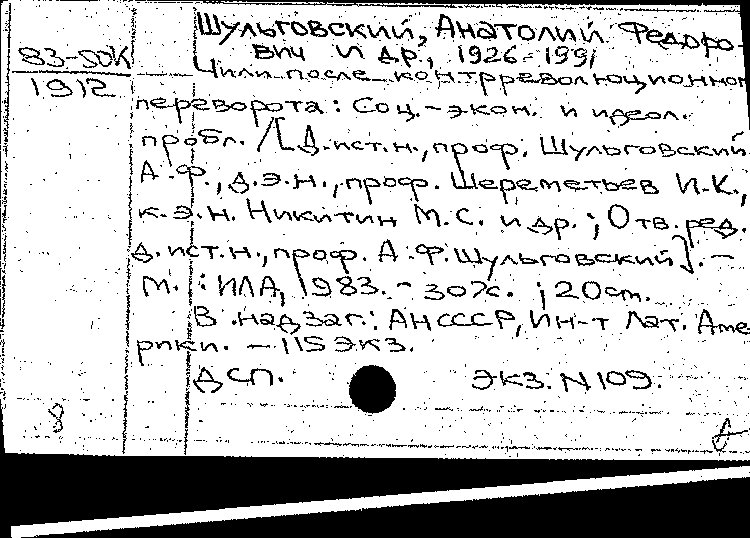 Шульговский, Анатолий Федоро-
вич и др., 1926-1991
83-50К
1912
Чили после контрреволюционног
переворота: Соц.-экон. и идеол.
пробл. / [Д.ист.н., проф. Шульговский
А.Ф., д.э.н., проф. Шереметьев И.К.,
к.э.н. Никитин М.С. и др.; Отв. ред.
д.ист.н., проф. А.Ф. Шульговский]. -
М.: ИЛА, 1983. - 307с. ; 20 cm.
В надзаг.: АН СССР, Ин-т Лат. Аме
рики. - 115 экз.
ДСП. Экз. N 109.
8